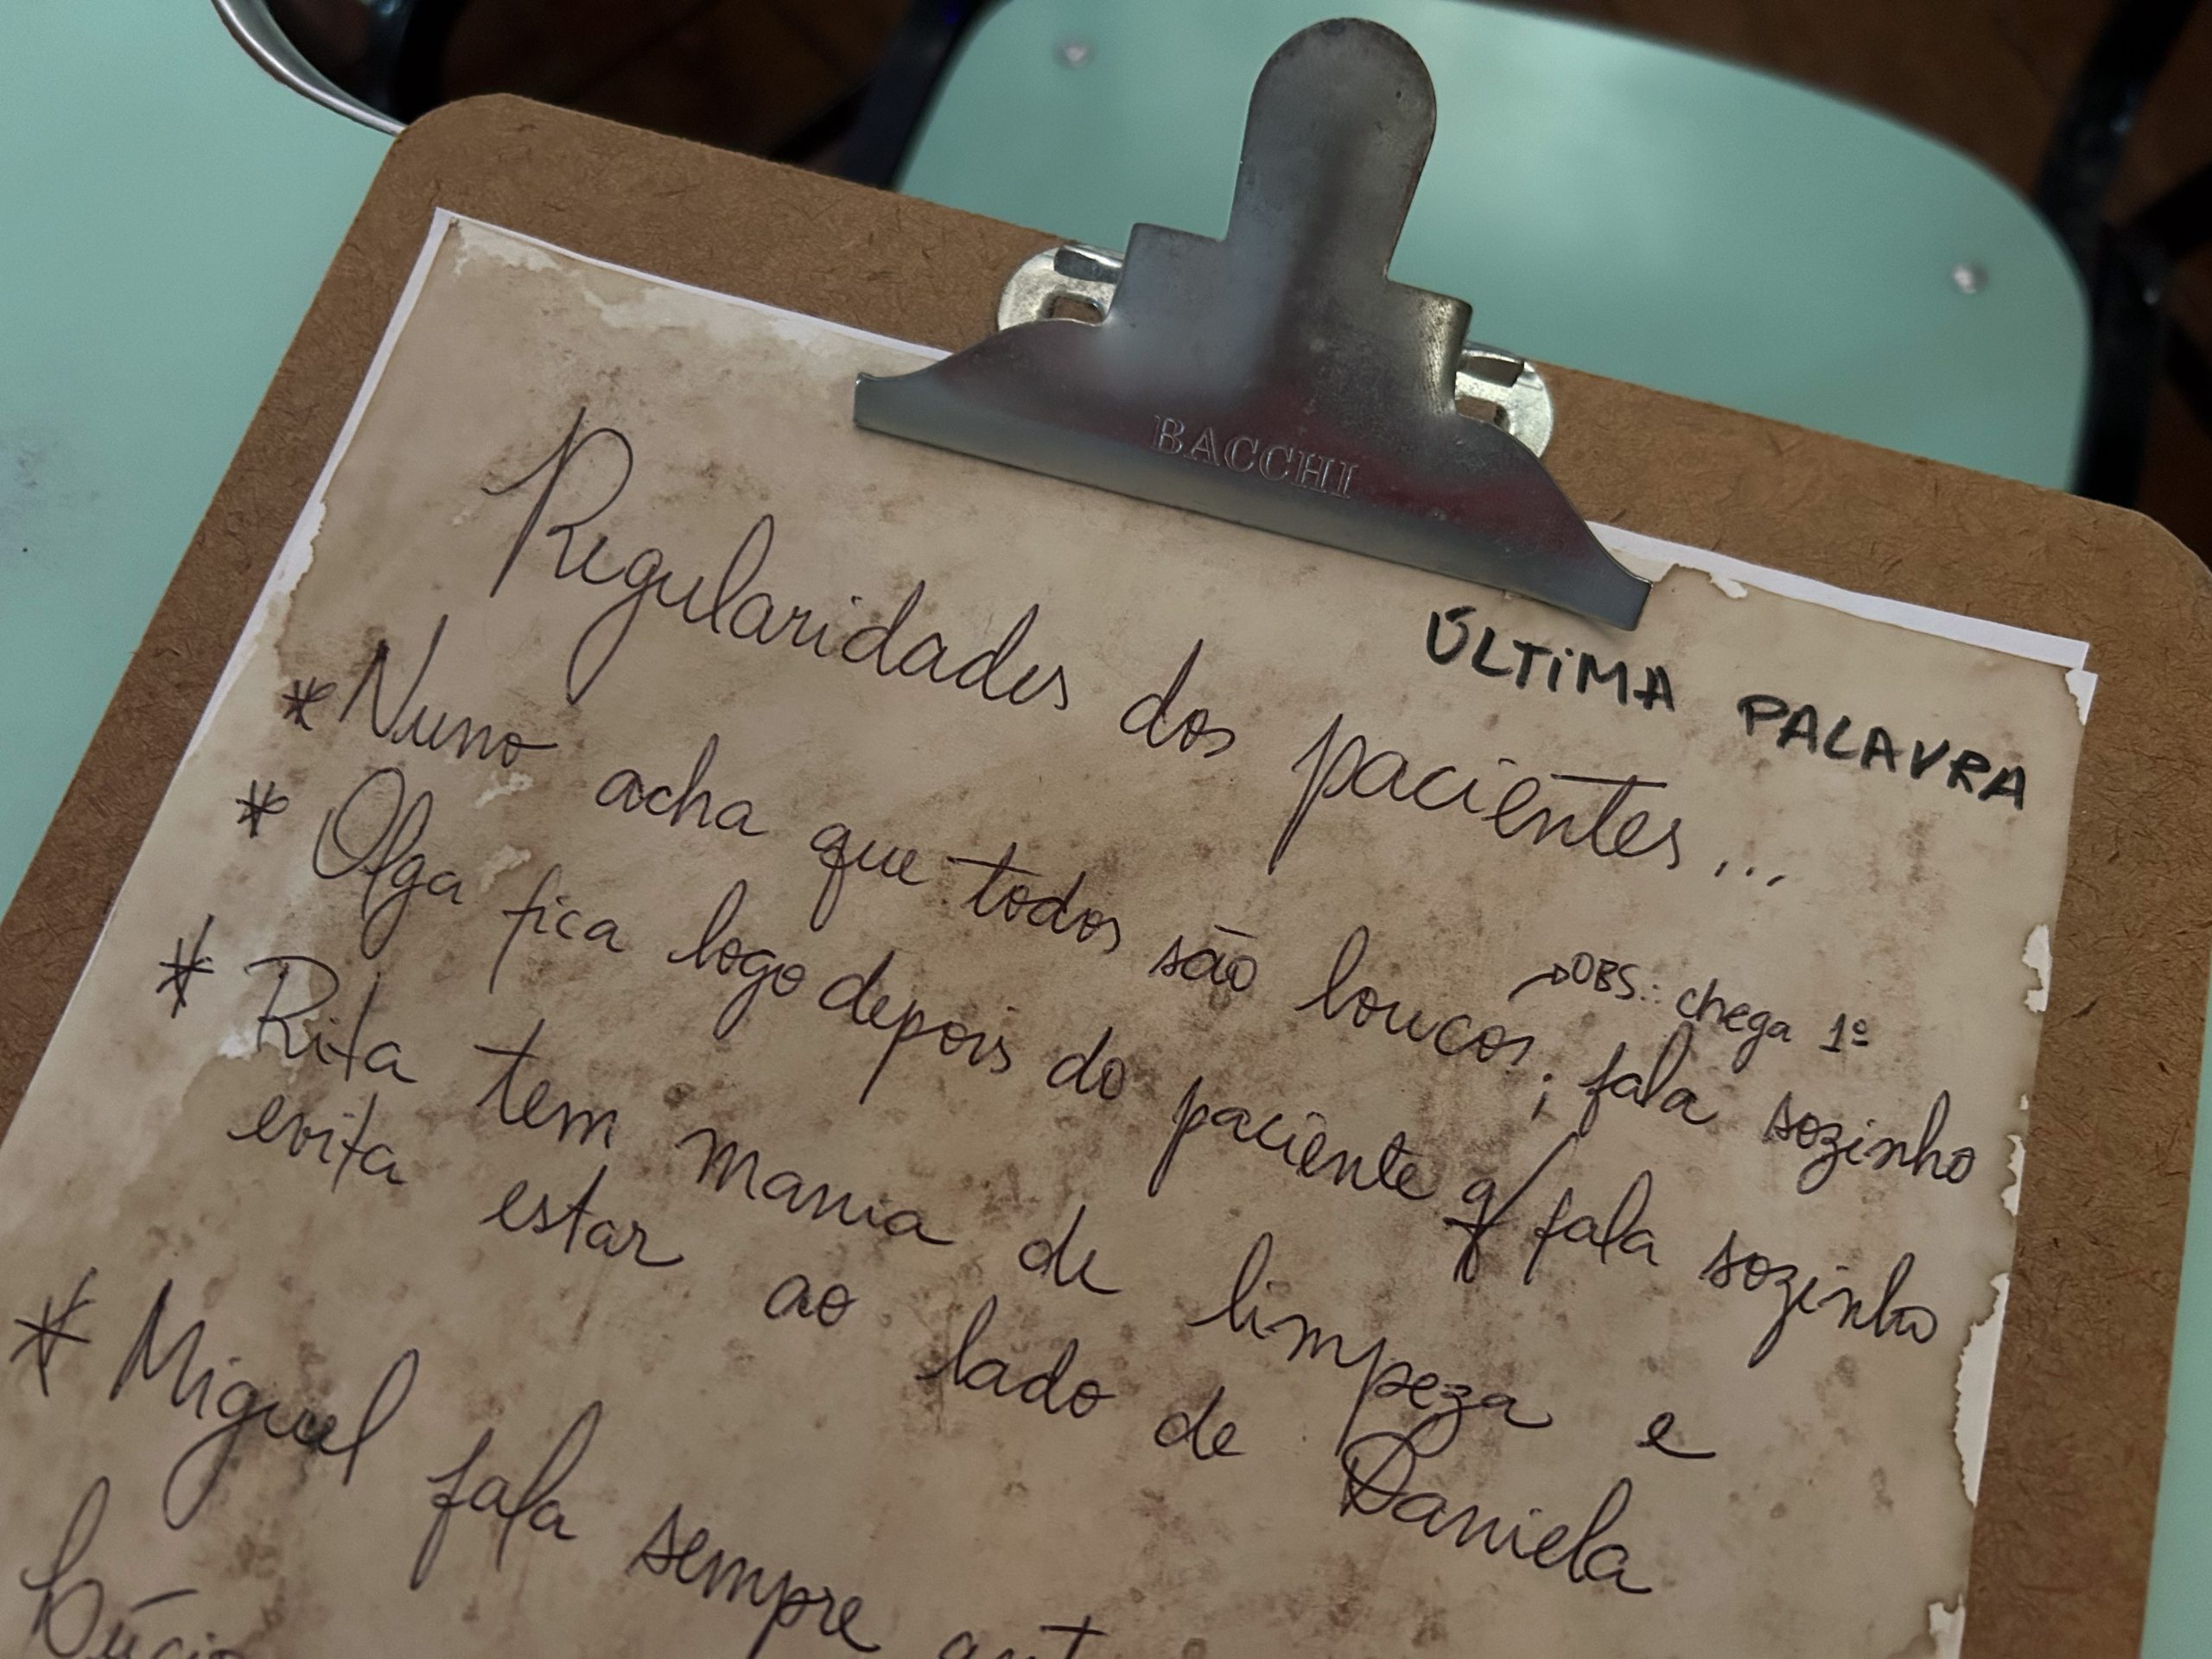 BACCHI
ÚLTIMA PALAVRA
Regularidades dos pacientes...
→OBS.: chega 1º
* Nuno acha que todos são loucos; fala sozinho
* Olga fica logo depois do paciente q/ fala sozinho
* Rita tem mania de limpeza e
evita estar ao lado de Daniela
* Miguel fala sempre